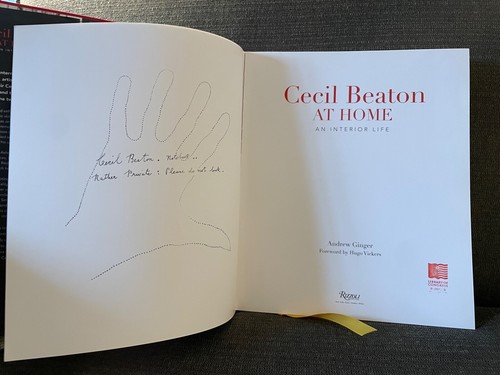 Cecil Beaton. Notebook..
Rather Private : Please do not look.
Cecil Beaton
AT HOME
AN INTERIOR LIFE
Andrew Ginger
Foreword by Hugo Vickers
RIZZOLI